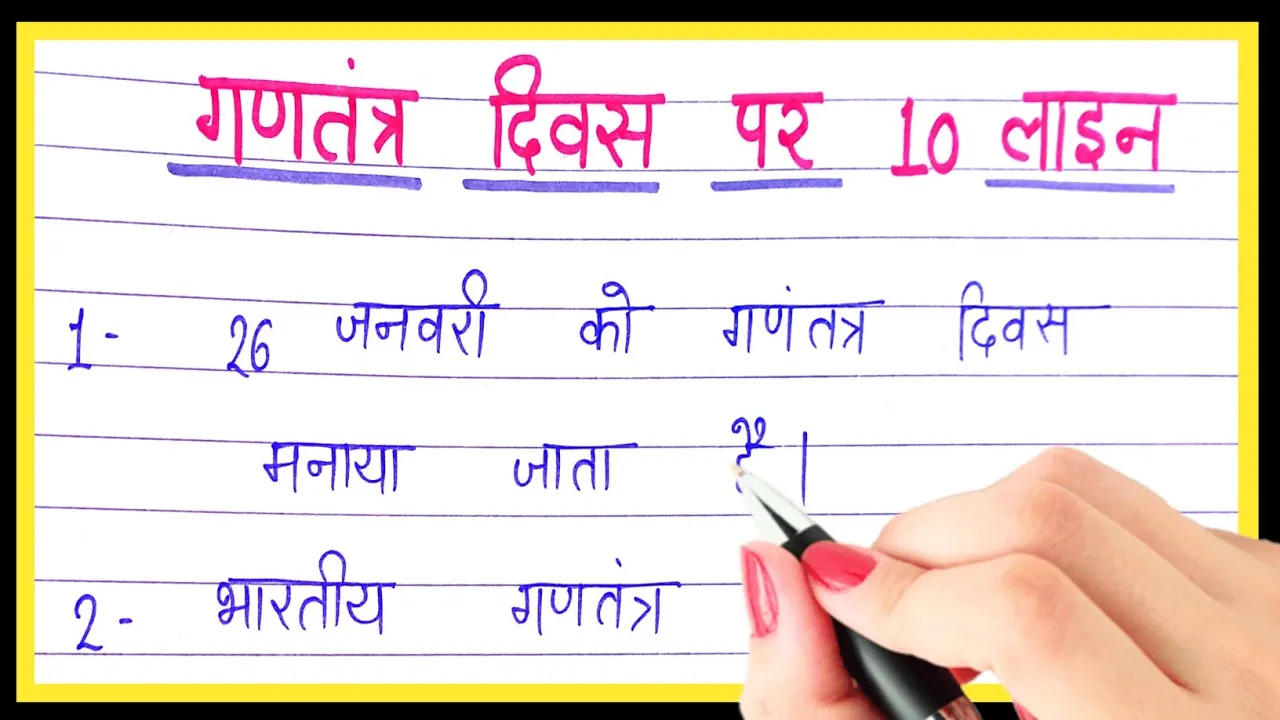 गणतंत्र दिवस पर 10 लाइन
1- 26 जनवरी को गणंतत्र दिवस
मनाया जाता है।
2- भारतीय गणतंत्र